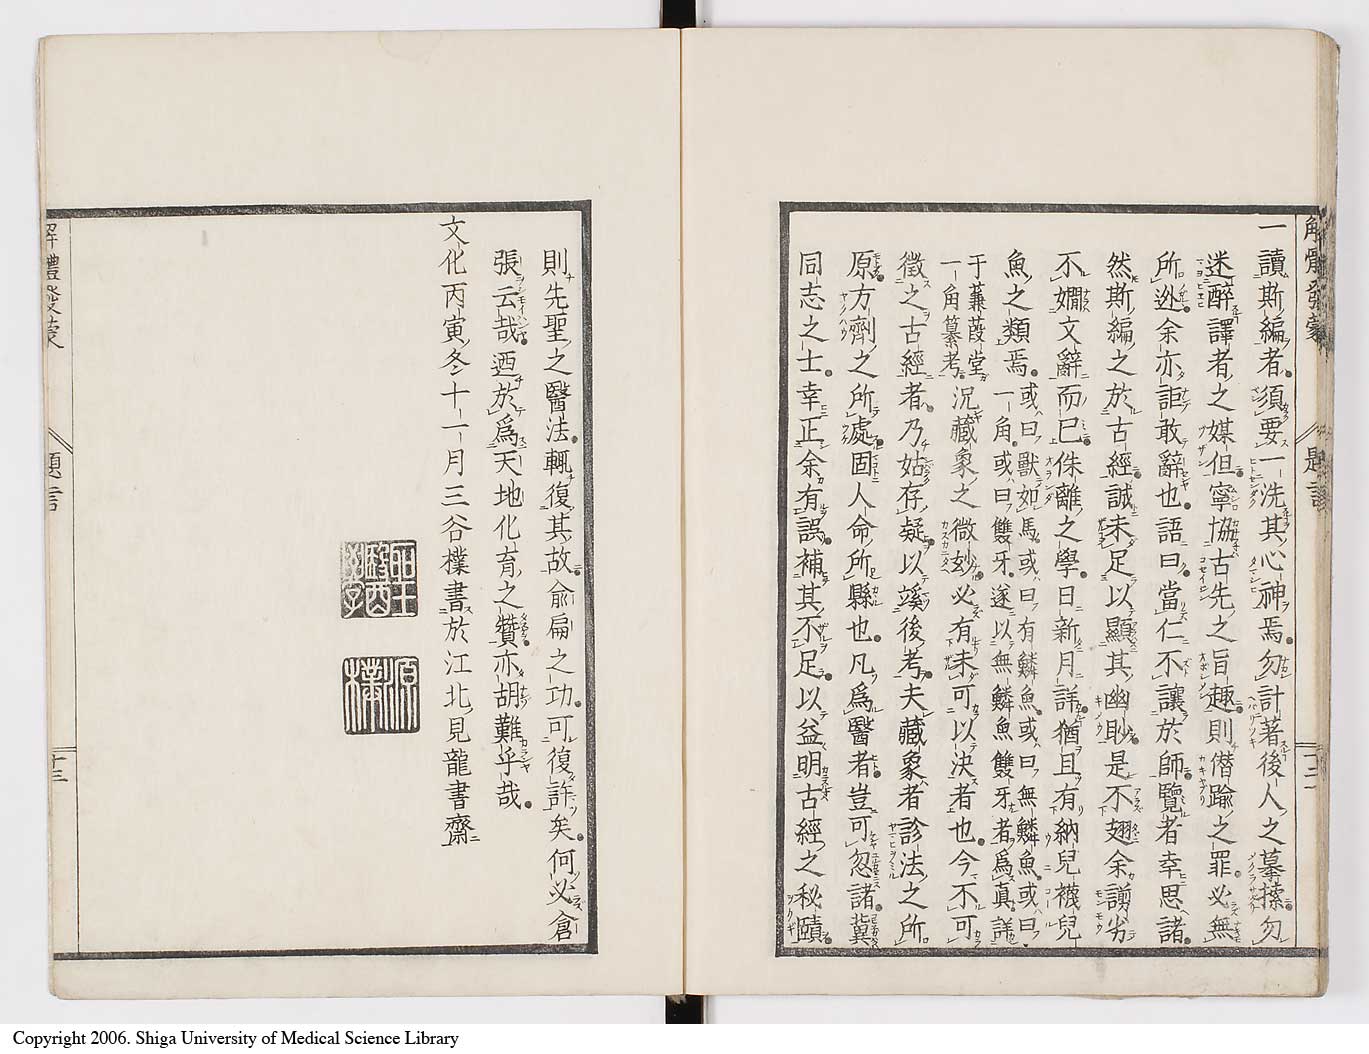 解體發蒙 題言 十三
一讀斯編者須要一洗其心神焉勿計著後人之摹㨞勿
迷醉譯者之媒但寧協古先之旨趣則僭踰之罪必無
所迯余亦詎敢辭也語曰當仁不讓於師覽者幸思諸
然斯編之於古經誠未足以顯其幽眇是不翅余謭劣
不嫺文辭而已侏離之學日新月詳猶且有納兒襪兒
魚之類焉。或曰獸如馬或曰有鱗魚或曰無鱗魚或曰
一角。或曰雙牙遂以無鱗魚雙牙者爲眞詳
于蒹葭堂
一角纂考。況藏象之微玅必有未可以決者也今不可
徵之古經者乃姑存疑以竢後考夫藏象者診法之所
原方劑之所處固人命所縣也。凡爲醫者豈可忽諸冀
同志之士幸正余有誤補其不足以益明古經之秘賾
則先聖之醫法輒復其故兪扁之功可復許矣何必倉
張云哉迺於爲天地化育之贊亦胡難乎哉
文化丙寅冬十一月三谷樸書於江北見龍書齋
解體發蒙 題言 十三
Copyright 2006. Shiga University of Medical Science Library